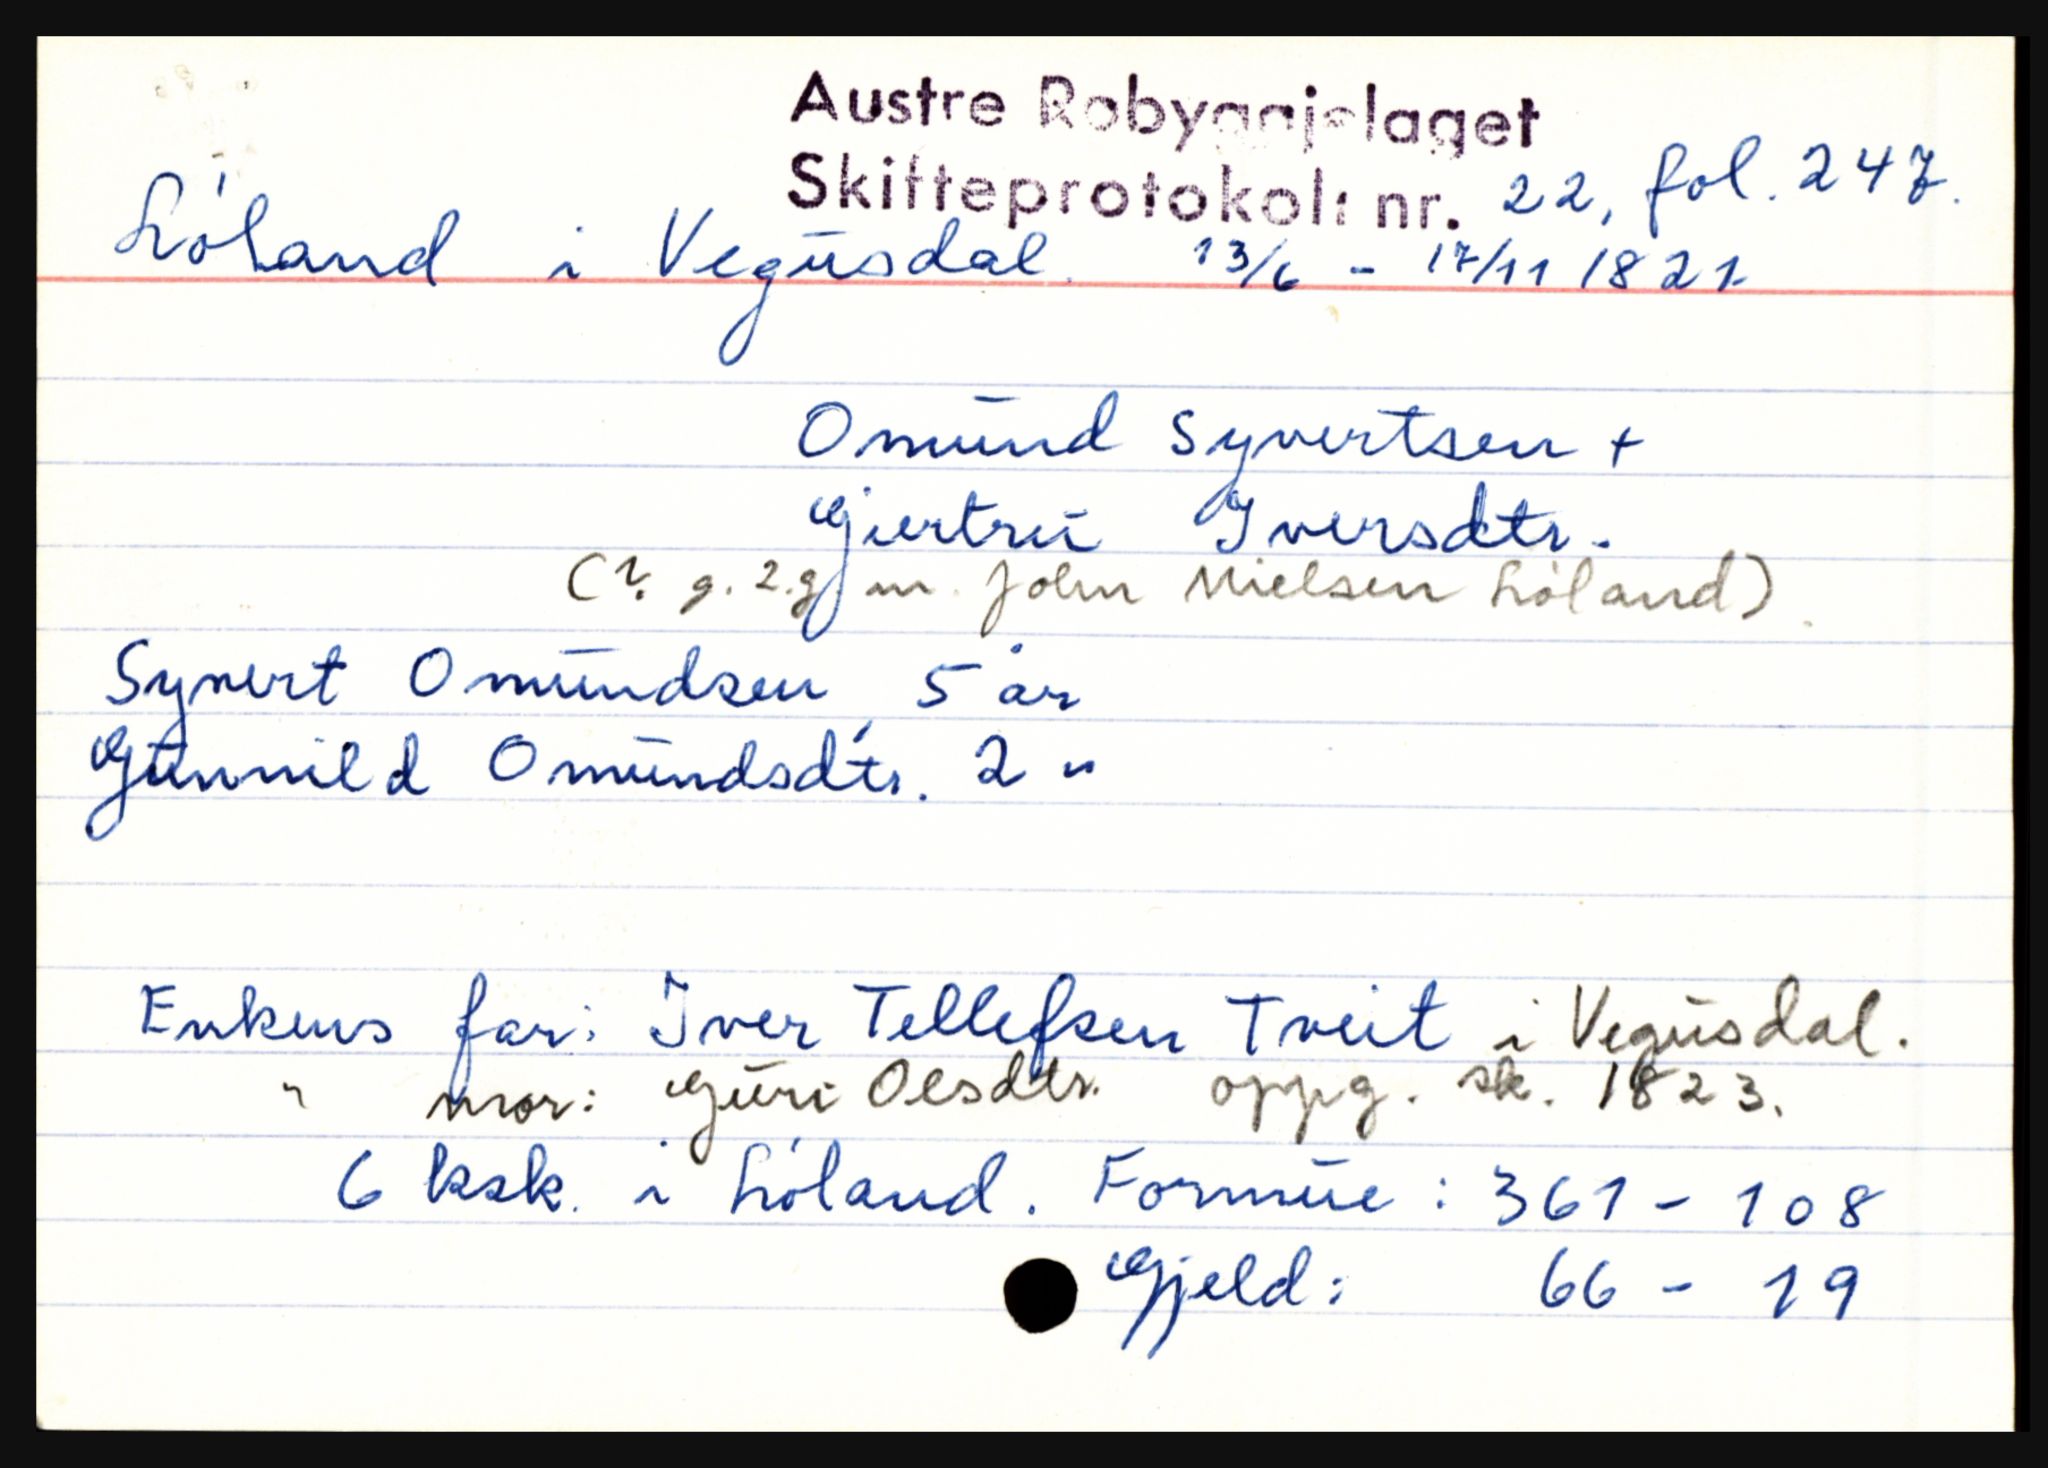 Austre Robyggjelaget
Skifteprotokoll nr. 22, fol. 247.
Lóland i Vegusdal. 13/6 - 17/11 1821.
Omund Syvertsen +
Gjertru Iversdtr.
(? g. 2.g m. John Nielsen Lóland).
Syvert Omundsen, 5 år
Gunnild Omundsdtr. 2 "
Enkens far: Iver Tellefsen Tveit i Vegusdal.
" mor: Guri Olsdtr. oppg. sk. 1823.
6 ksk. i Lóland. Formue: 361 - 108
Gjeld: 66 - 19